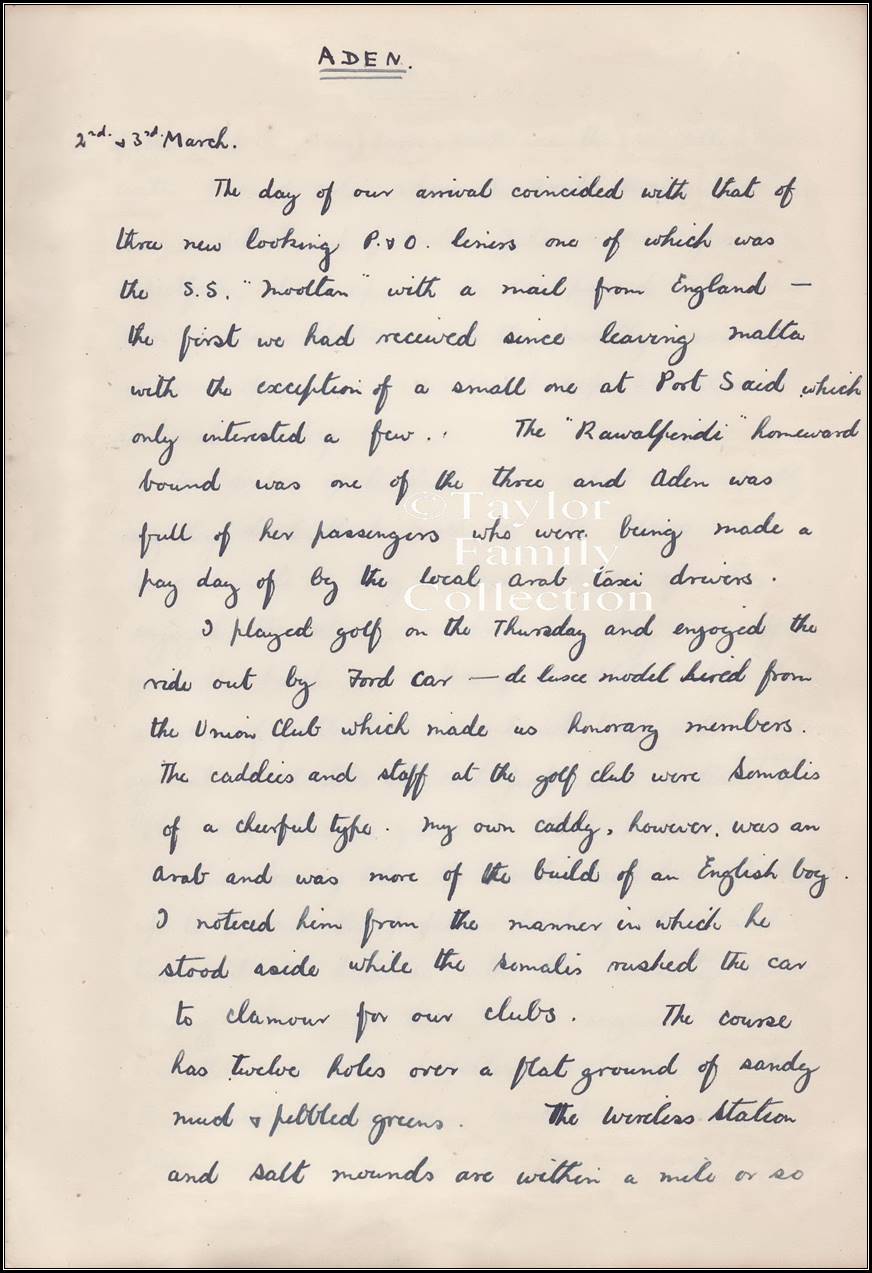 ADEN.
2nd. & 3rd. March.
The day of our arrival coincided with that of
three new looking P. & O. liners one of which was
the S.S. "Mooltan" with a mail from England —
the first we had received since leaving Malta
with the exception of a small one at Port Said which
only interested a few. The "Rawalpindi" homeward
bound was one of the three and Aden was
full of her passengers who were being made a
pay day of by the local Arab taxi drivers.
I played golf on the Thursday and enjoyed the
ride out by Ford car — de luxe model hired from
the Union Club which made us honorary members.
The caddies and staff at the golf club were Somalis
of a cheerful type. My own caddy, however, was an
Arab and was more of the build of an English boy.
I noticed him from the manner in which he
stood aside while the Somalis rushed the car
to clamour for our clubs. The course
has twelve holes over a flat ground of sandy
mud & pebbled greens. The Wireless Station
and salt mounds are within a mile or so
©Taylor
Family
Collection